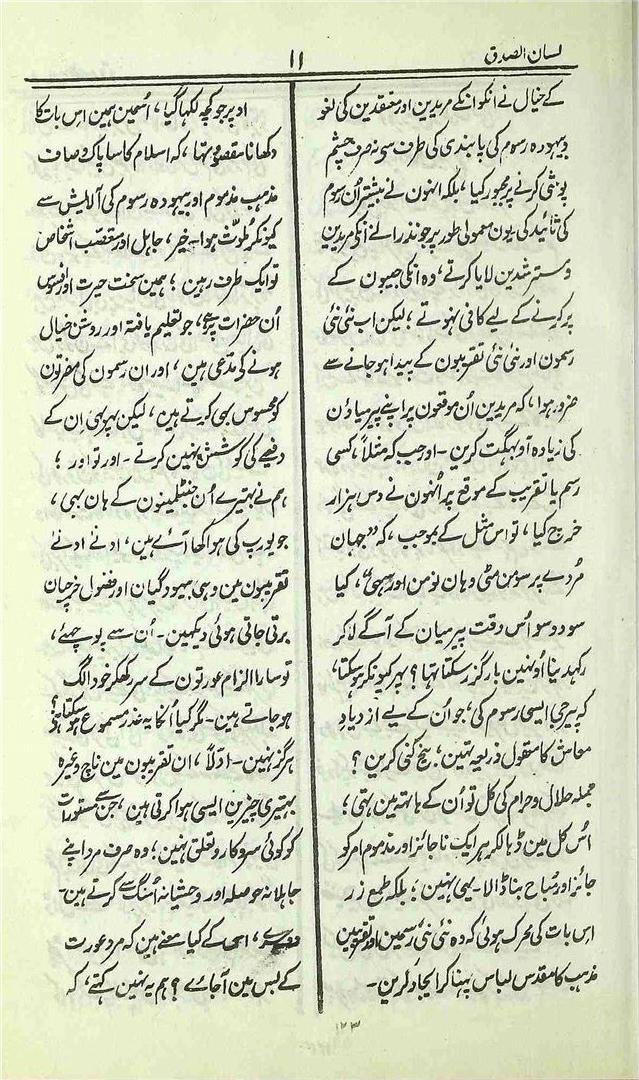 لسان الصدق
۱۱
کے خیال نے انکو انکے مریدین اور معتقدین کی لغو
و بیہودہ رسوم کی پابندی کی طرف سے نہ صرف چشم
پوشی کرنے پر مجبور کیا، بلکہ انہون نے بیشتر اُن رسوم
کی تائید کی یون معمولی طور پر جو نذرانے انکے مریدین
و مسترشدین لایا کرتے، وہ انکی جیبون کے
پر کرنے کے لیے کافی نہوتے؛ لیکن اب نئی نئی
رسمون اور نئی نئی تقریبون کے پیدا ہو جانے سے
ضرور ہوا، کہ مریدین اُن موقعون پر اپنے پیر میاؤن
کی زیادہ آؤ بھگت کرین - اور جب کہ مثلاً، کسی
رسم یا تقریب کے موقع پر اُنہون نے دس ہزار
خرچ کیا، تو اس مثل کے بموجب، کہ "جہان
مُردے پر سو من مٹی وہان نو من اور سہی"، کیا
سو دو سو اُس وقت پیر میان کے آگے لا کر
رکہدینا اُنہین بار گزر سکتا تھا؟ پھر کیونکر ہو سکتا،
کہ پیر جی ایسی رسوم کی، جو اُن کے لیے ازدیادِ
معاش کا معقول ذریعہ تہین، بیخ کنی کرین؟
جملہ حلال و حرام کی کل تو اُن کے ہاتہ مین تہی؛
اُس کل مین ڈہالکر ہر ایک ناجائز اور مذموم امر کو
جائز اور مُباح بنا ڈالا - یہی نہین؛ بلکہ طمع زر
اس بات کی محرک ہوئی کہ وہ نئی نئی رسمین اور تقریبین
مذہب کا مقدس لباس پہنا کر ایجاد کرین -
اوپر جو کچھ لکہا گیا، اُسمین ہمین اس بات کا
دکھانا مقصود تہا، کہ اسلام کا سا پاک و صاف
مذہب مذموم اور بیہودہ رسوم کی آلایش سے
کیونکر ملوّث ہوا - خیر، جاہل اور متعصب اشخاص
تو ایک طرف رہین؛ ہمین سخت حیرت اور افسوس
اُن حضرات پر ہے، جو تعلیم یافتہ اور روشن خیال
ہونے کے مدّعی ہین، اور ان رسمون کی مضرتون
کو محسوس بھی کرتے ہین، لیکن پہر بہی اِن کے
دفعیے کی کوشش نہین کرتے - اور تو اور؛
ہم نے بہتیرے اُن جنٹلمینون کے ہان بہی،
جو یورپ کی ہوا کھا آئے ہین، ادنے ادنے
تقریبون مین وہی بیہودگیان اور فضول خرچیان
برتی جاتی ہوئی دیکہین - اُن سے پوچہئے،
تو سارا الزام عورتون کے سر رکھکر خود الگ
ہو جاتے ہین - مگر کیا اُنکا یہ عذر مسموع ہو سکتا ہے؟
ہرگز نہین - اوّلاً، ان تقریبون مین ناچ وغیرہ
بہتیری چیزین ایسی ہوا کرتی ہین، جن سے مستورات
کو کوئی سروکار و تعلق نہین؛ وہ صرف مرد اپنے
جاہلانہ حوصلہ اور وحشیانہ اُمنگ سے کرتے ہین -
دوسرے، اسکے کیا معنے ہین کہ مرد عورت
کے بس مین آ جائے؟ ہم یہ نہین کہتے، کہ
۱۲۳